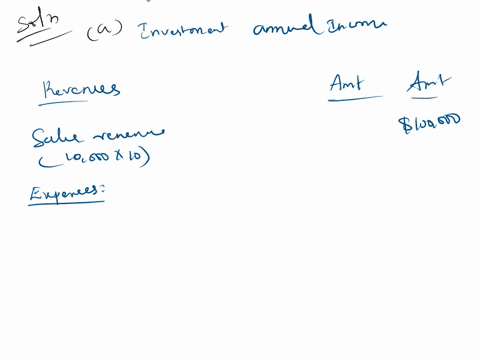 Soln (a) Investment annual Income
Revenues Amt Amt
Sales revenue $100,000
(10,000 x 10)
Expenses: